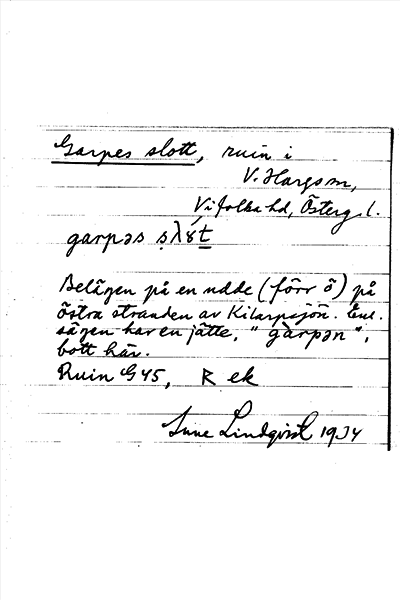 Garpes slott, ruin i
V. Hargs sn,
Vifolka hd, Österg. l.
garpəs ṣλɤ́t
Belägen på en udde (förr ö) på
östra stranden av Kilarpesjön. Enl.
sägen har en jätte, "gàrpən",
bott här.
Ruin G45, R ek
Sune Lindqvist 1934